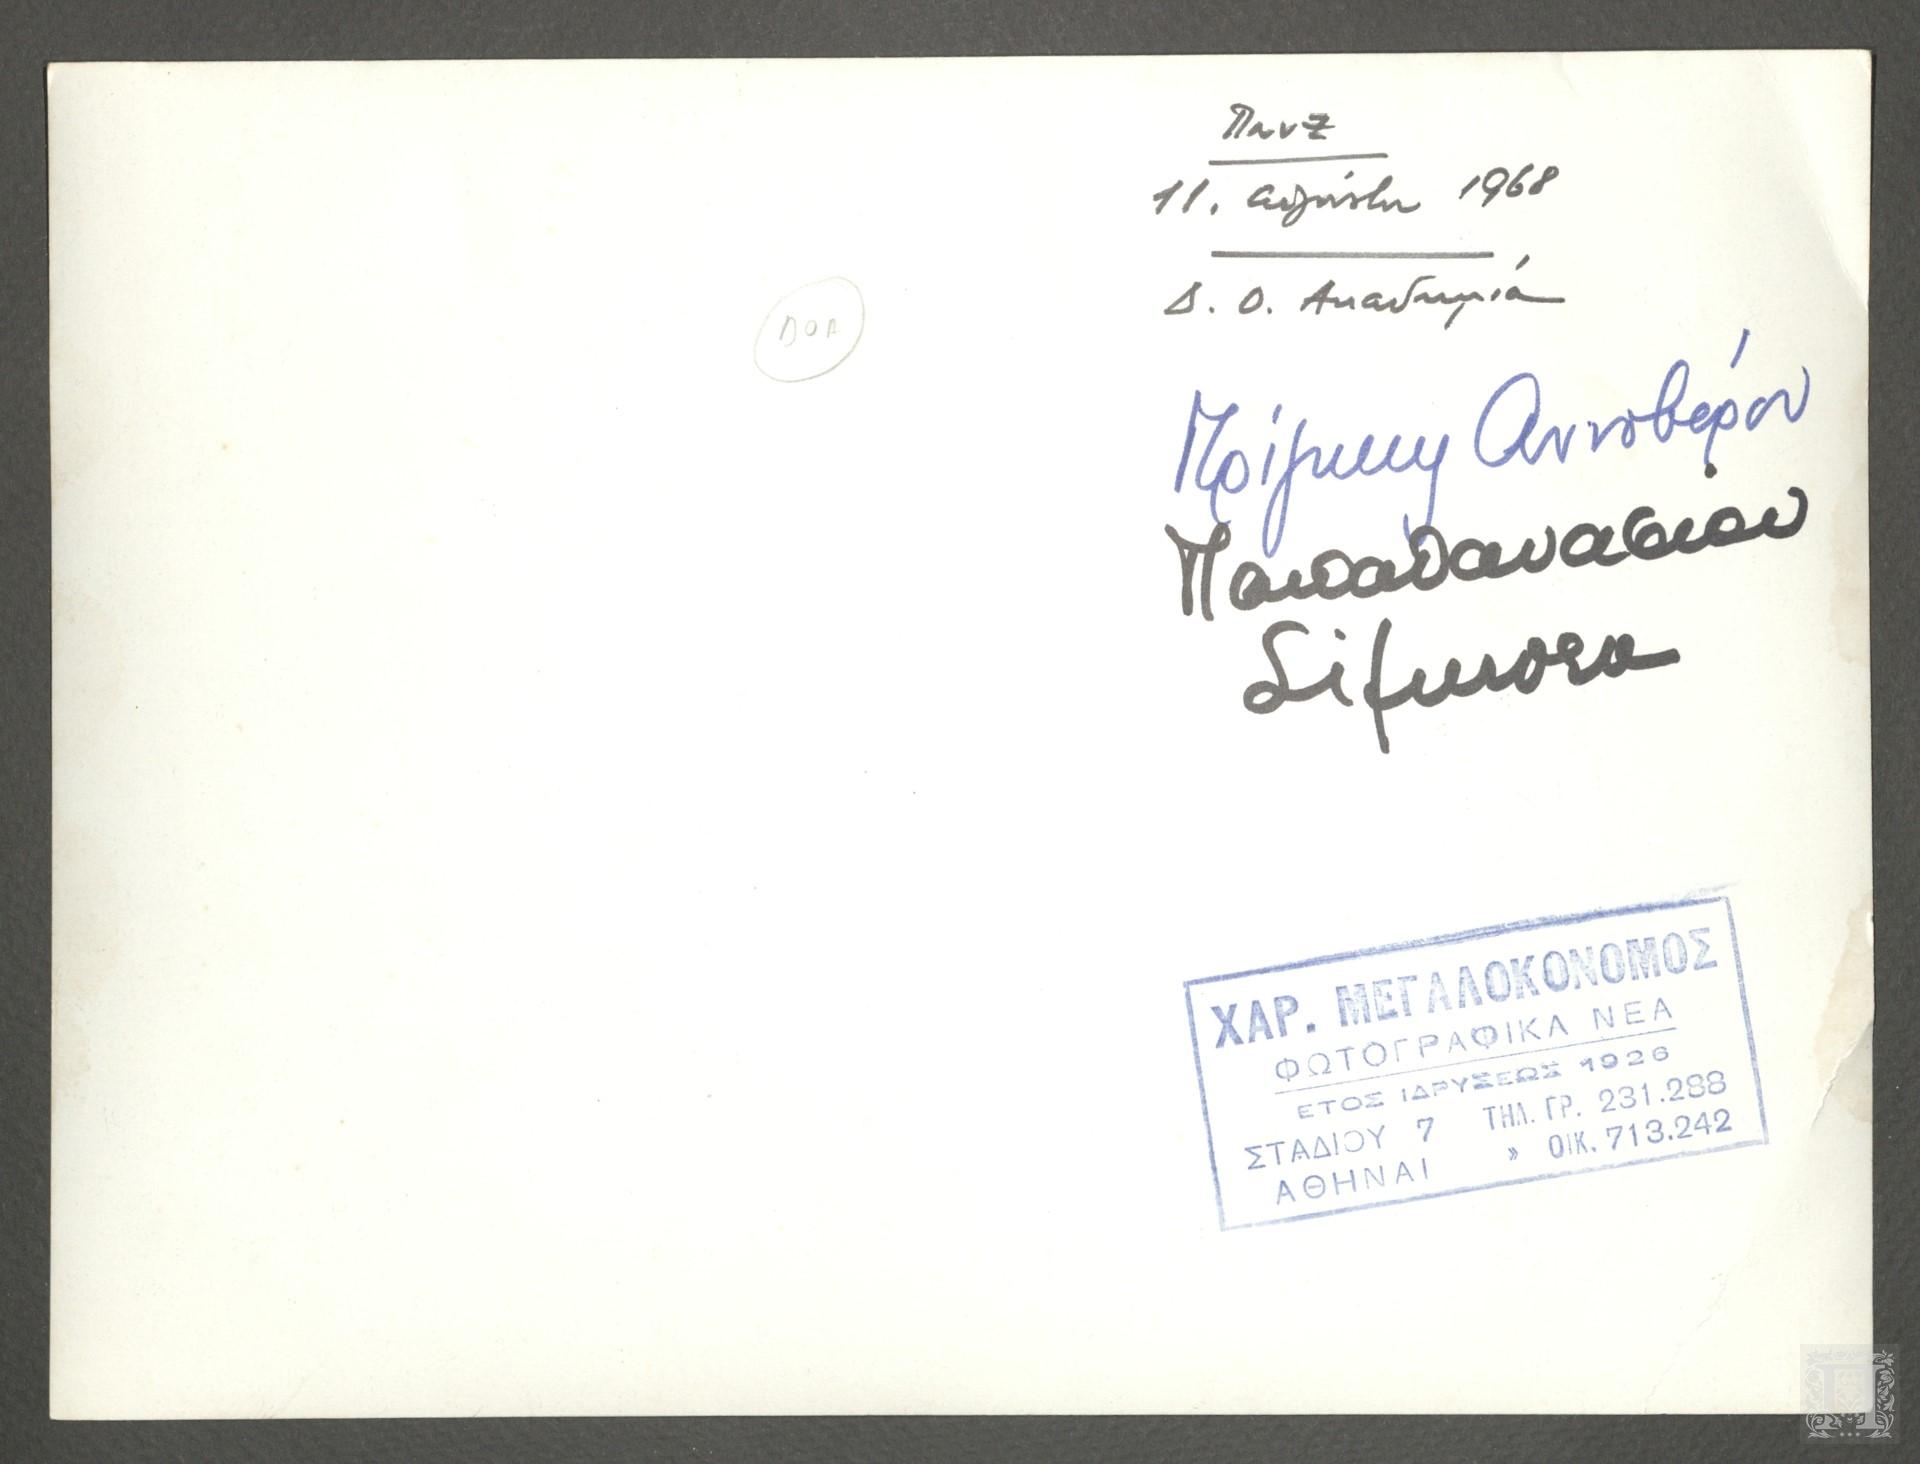 Πνυξ
11. Αυγούστου 1968
Δ. Ο. Ακαδημία
ΔΟΑ
Πρίγκιψ Αννοβέρου
Παπαθανασίου
Σίμιτσεκ
ΧΑΡ. ΜΕΓΑΛΟΚΟΝΟΜΟΣ
ΦΩΤΟΓΡΑΦΙΚΑ ΝΕΑ
ΕΤΟΣ ΙΔΡΥΣΕΩΣ 1926
ΣΤΑΔΙΟΥ 7 ΤΗΛ. ΓΡ. 231.288
ΑΘΗΝΑΙ » ΟΙΚ. 713.242